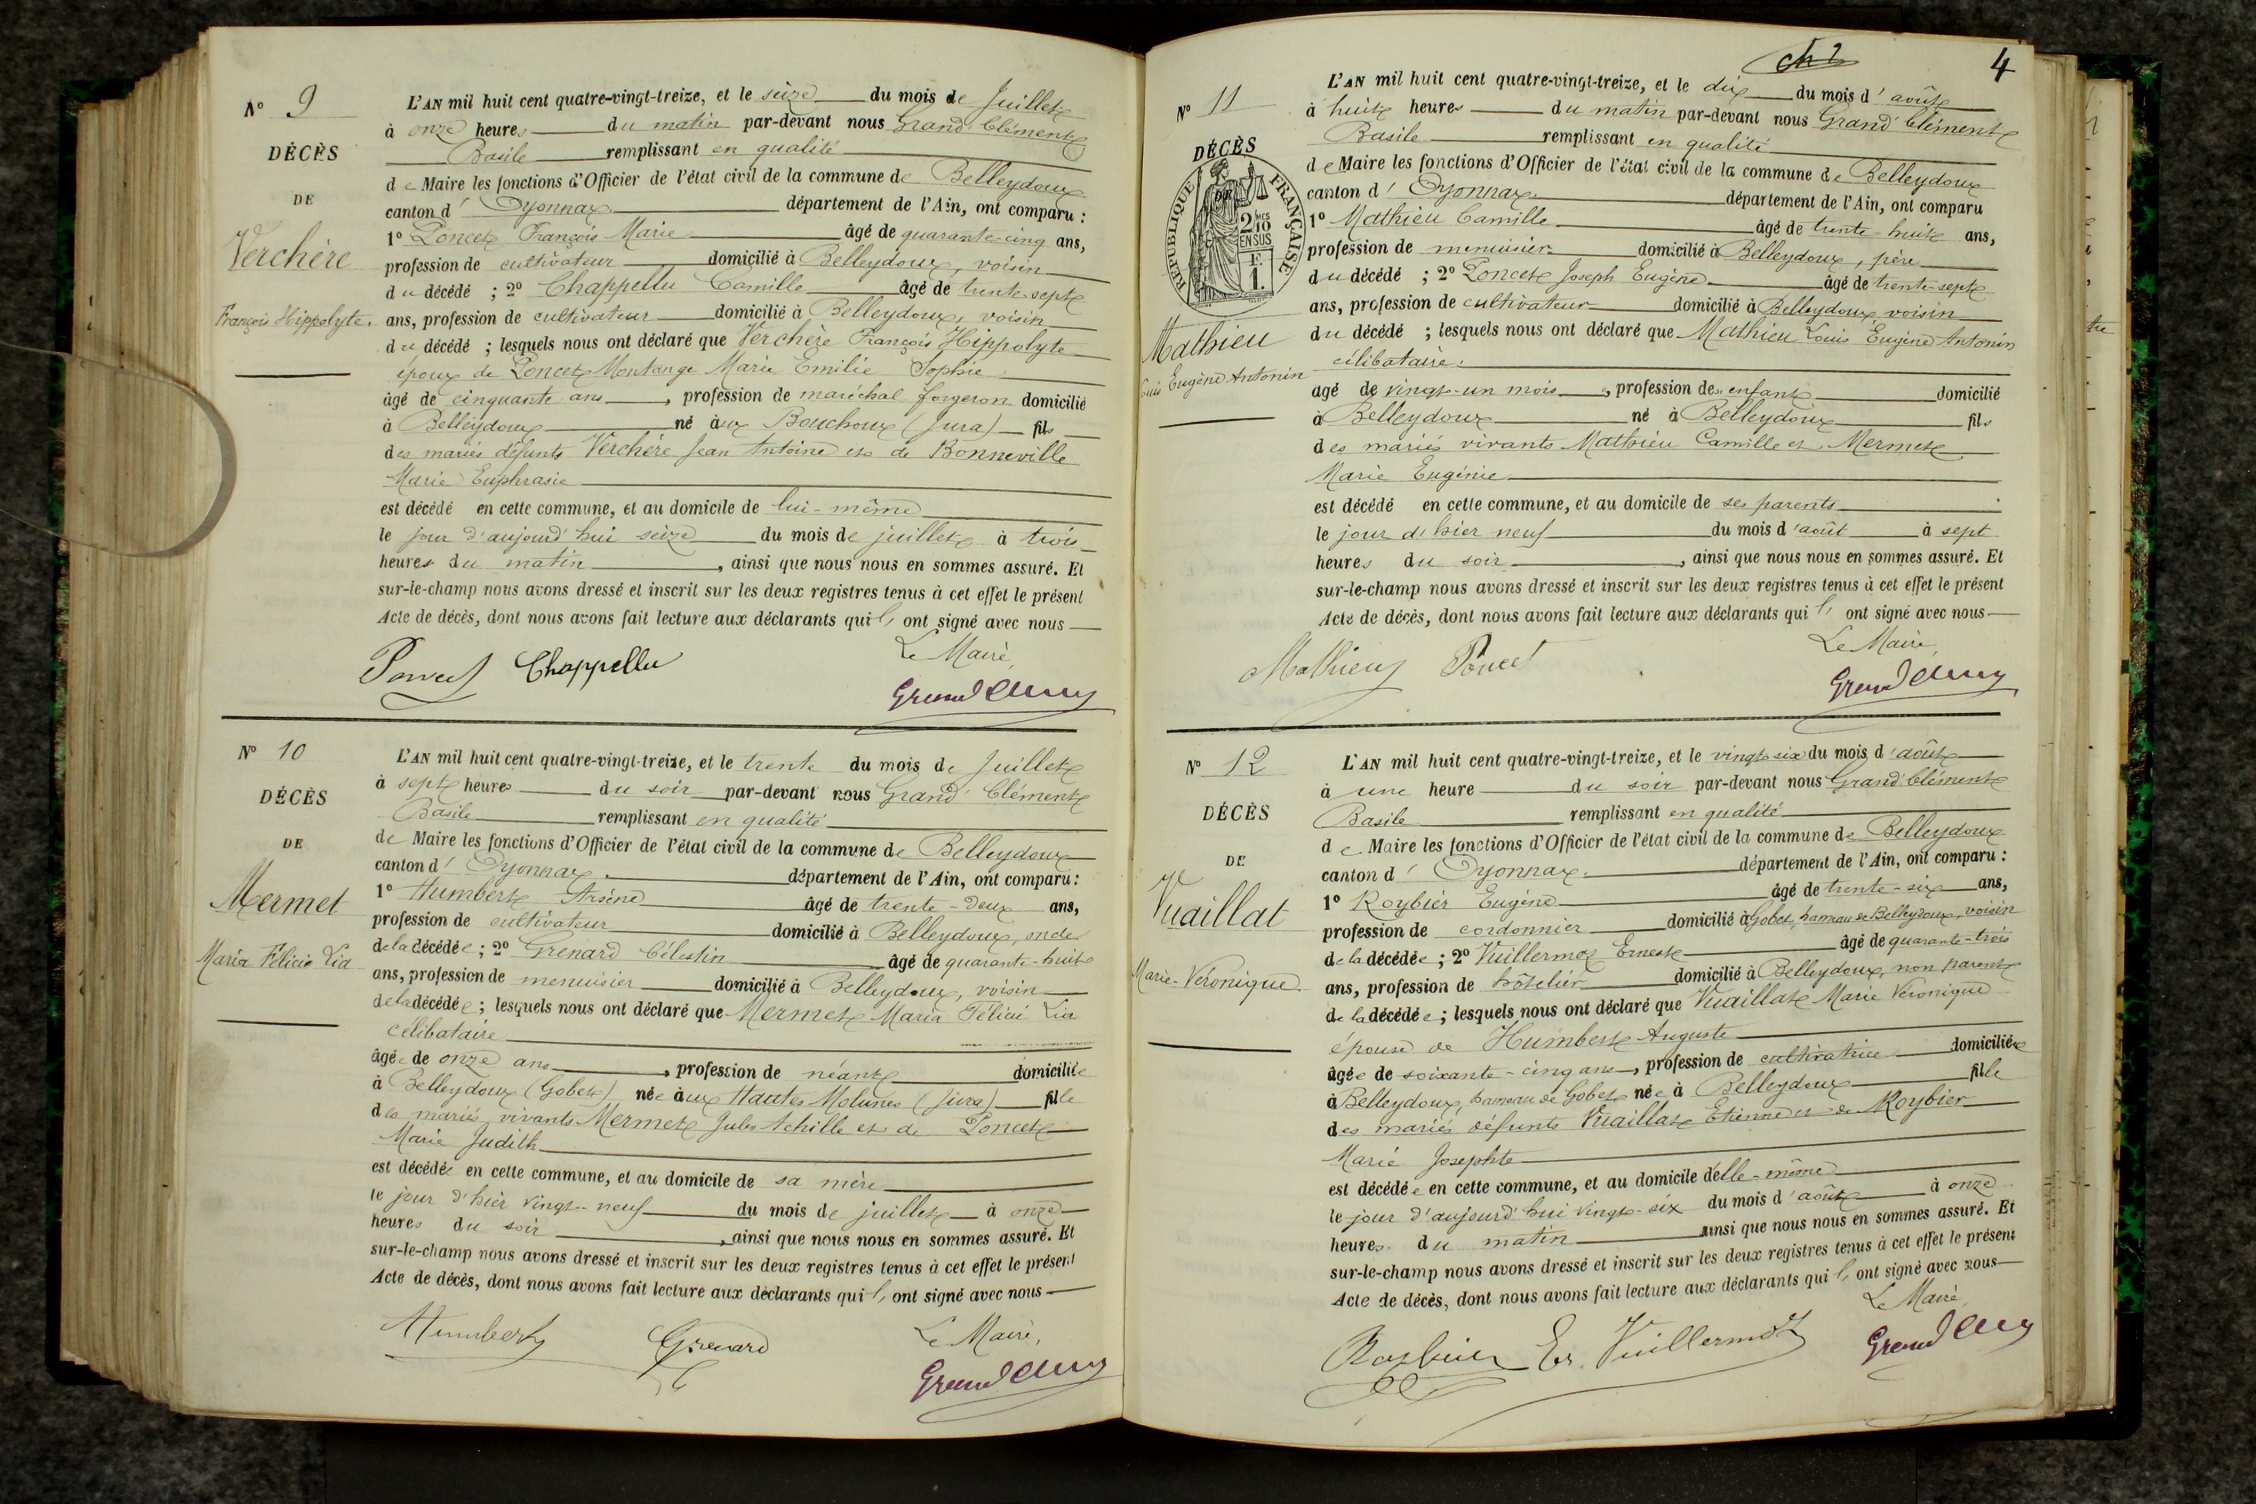 N° 9
DÉCÈS
DE
Verchère
François Hippolyte.
L'AN mil huit cent quatre-vingt-treize, et le seize du mois de Juillet
à onze heures du matin par-devant nous Grand Clément
Basile remplissant en qualité
de Maire les fonctions d'Officier de l'état civil de la commune de Belleydoux
canton d' Oyonnax département de l'Ain, ont comparu :
1° Poncet François Marie âgé de quarante-cinq ans,
profession de cultivateur domicilié à Belleydoux, voisin
du décédé ; 2° Chappellu Camille âgé de trente-sept
ans, profession de cultivateur domicilié à Belleydoux, voisin
du décédé ; lesquels nous ont déclaré que Verchère François Hippolyte
époux de Poncet Montange Marie Emilie Sophie
âgé de cinquante ans, profession de maréchal forgeron domicilié
à Belleydoux né aux Bouchoux (Jura) fils
des mariés défunts Verchère Jean Antoine et de Bonneville
Marie Euphrasie
est décédé en cette commune, et au domicile de lui-même
le jour d'aujourd'hui seize du mois de juillet à trois
heures du matin, ainsi que nous nous en sommes assuré. Et
sur-le-champ nous avons dressé et inscrit sur les deux registres tenus à cet effet le présent
Acte de décès, dont nous avons fait lecture aux déclarants qui ont signé avec nous
Le Maire,
Poncet Chappellu
Grand Clém
N° 10
DÉCÈS
DE
Mermet
Maria Félicie Lia
L'AN mil huit cent quatre-vingt-treize, et le trente du mois de Juillet
à sept heures du soir par-devant nous Grand Clément
Basile remplissant en qualité
de Maire les fonctions d'Officier de l'état civil de la commune de Belleydoux
canton d' Oyonnax département de l'Ain, ont comparu :
1° Humbert Arsène âgé de trente-deux ans,
profession de cultivateur domicilié à Belleydoux, oncle
de la décédée ; 2° Grenard Célestin âgé de quarante-huit
ans, profession de menuisier domicilié à Belleydoux, voisin
de la décédée ; lesquels nous ont déclaré que Mermet Maria Félicie Lia
célibataire
âgée de onze ans, profession de néant domiciliée
à Belleydoux (Gobet) née aux Hautes Molunes (Jura) fille
des mariés vivants Mermet Jules Achille et de Poncet
Marie Judith
est décédée en cette commune, et au domicile de sa mère
le jour d'hier vingt-neuf du mois de juillet à onze
heures du soir, ainsi que nous nous en sommes assuré. Et
sur-le-champ nous avons dressé et inscrit sur les deux registres tenus à cet effet le présent
Acte de décès, dont nous avons fait lecture aux déclarants qui ont signé avec nous
Humbert Grenard Le Maire,
Grand Clém
4
N° 11
DÉCÈS
DE
RÉPUBLIQUE FRANÇAISE
2/10 EN SUS
F. 1.
Mathieu
Louis Eugène Antonin
L'AN mil huit cent quatre-vingt-treize, et le dix du mois d'août
à huit heures du matin par-devant nous Grand Clément
Basile remplissant en qualité
de Maire les fonctions d'Officier de l'état civil de la commune de Belleydoux
canton d' Oyonnax département de l'Ain, ont comparu
1° Mathieu Camille âgé de trente-huit ans,
profession de menuisier domicilié à Belleydoux, père
du décédé ; 2° Poncet Joseph Eugène âgé de trente-sept
ans, profession de cultivateur domicilié à Belleydoux voisin
du décédé ; lesquels nous ont déclaré que Mathieu Louis Eugène Antonin
célibataire.
agé de vingt-un mois, profession de enfant domicilié
à Belleydoux né à Belleydoux fils
des mariés vivants Mathieu Camille et Mermet
Marie Eugénie
est décédé en cette commune, et au domicile de ses parents
le jour d'hier neuf du mois d'août à sept
heures du soir, ainsi que nous nous en sommes assuré. Et
sur-le-champ nous avons dressé et inscrit sur les deux registres tenus à cet effet le présent
Acte de décès, dont nous avons fait lecture aux déclarants qui ont signé avec nous
Le Maire,
Mathieu Poncet
Grand Clém
N° 12
DÉCÈS
DE
Vuaillat
Marie-Véronique
L'AN mil huit cent quatre-vingt-treize, et le vingt-six du mois d'août
à une heure du soir par-devant nous Grand Clément
Basile remplissant en qualité
de Maire les fonctions d'Officier de l'état civil de la commune de Belleydoux
canton d' Oyonnax département de l'Ain, ont comparu :
1° Roybier Eugène âgé de trente-six ans,
profession de cordonnier domicilié à Gobet, hameau de Belleydoux, voisin
de la décédée ; 2° Vuillermoz Ernest âgé de quarante-trois
ans, profession de hôtelier domicilié à Belleydoux, non parent
de la décédée ; lesquels nous ont déclaré que Vuaillat Marie Véronique
épouse de Humbert Auguste
âgée de soixante-cinq ans, profession de cultivatrice domiciliée
à Belleydoux, hameau de Gobet née à Belleydoux fille
des mariés défunts Vuaillat Etienne et de Roybier
Marie Josephte
est décédée en cette commune, et au domicile d'elle-même
le jour d'aujourd'hui vingt-six du mois d'août à onze
heures du matin ainsi que nous nous en sommes assuré. Et
sur-le-champ nous avons dressé et inscrit sur les deux registres tenus à cet effet le présent
Acte de décès, dont nous avons fait lecture aux déclarants qui ont signé avec nous
Le Maire,
Roybier Er. Vuillermoz Grand Clém